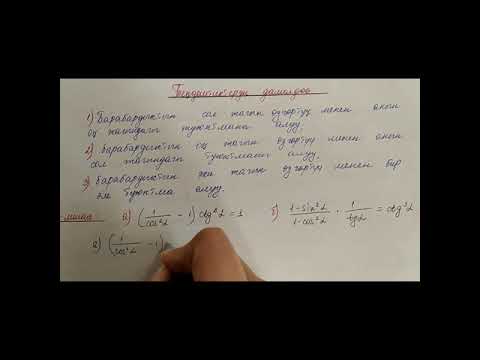 Теңдештиктерди далилдөө
1) Барабардыктын сол жагын өзгөртүү менен анын
оң жагындагы туюнтманы алуу.
2) барабардыктын оң жагын өзгөртүү менен анын
сол жагындагы туюнтманы алуу.
3) барабардыктын эки жагын өзгөртүү менен бир
эле туюнтма алуу.
-мисал а) (1/cos²α - 1) ctg²α = 1 б) (1-sin²α)/(1-cos²α) · 1/tgα = ctg³α
а) (1/cos²α - 1)